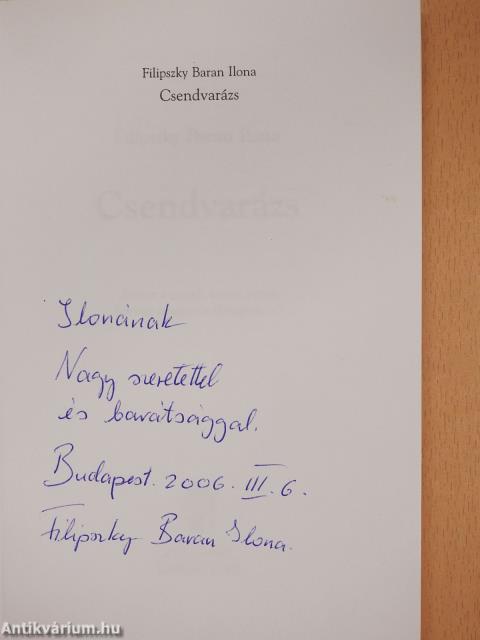 Filipszky Baran Ilona
Csendvarázs
Filipszky Baran Ilona
Csendvarázs
Ilonának
Nagy szeretettel
és barátsággal.
Budapest. 2006. III. 6.
Filipszky Baran Ilona.
Antikvárium.hu